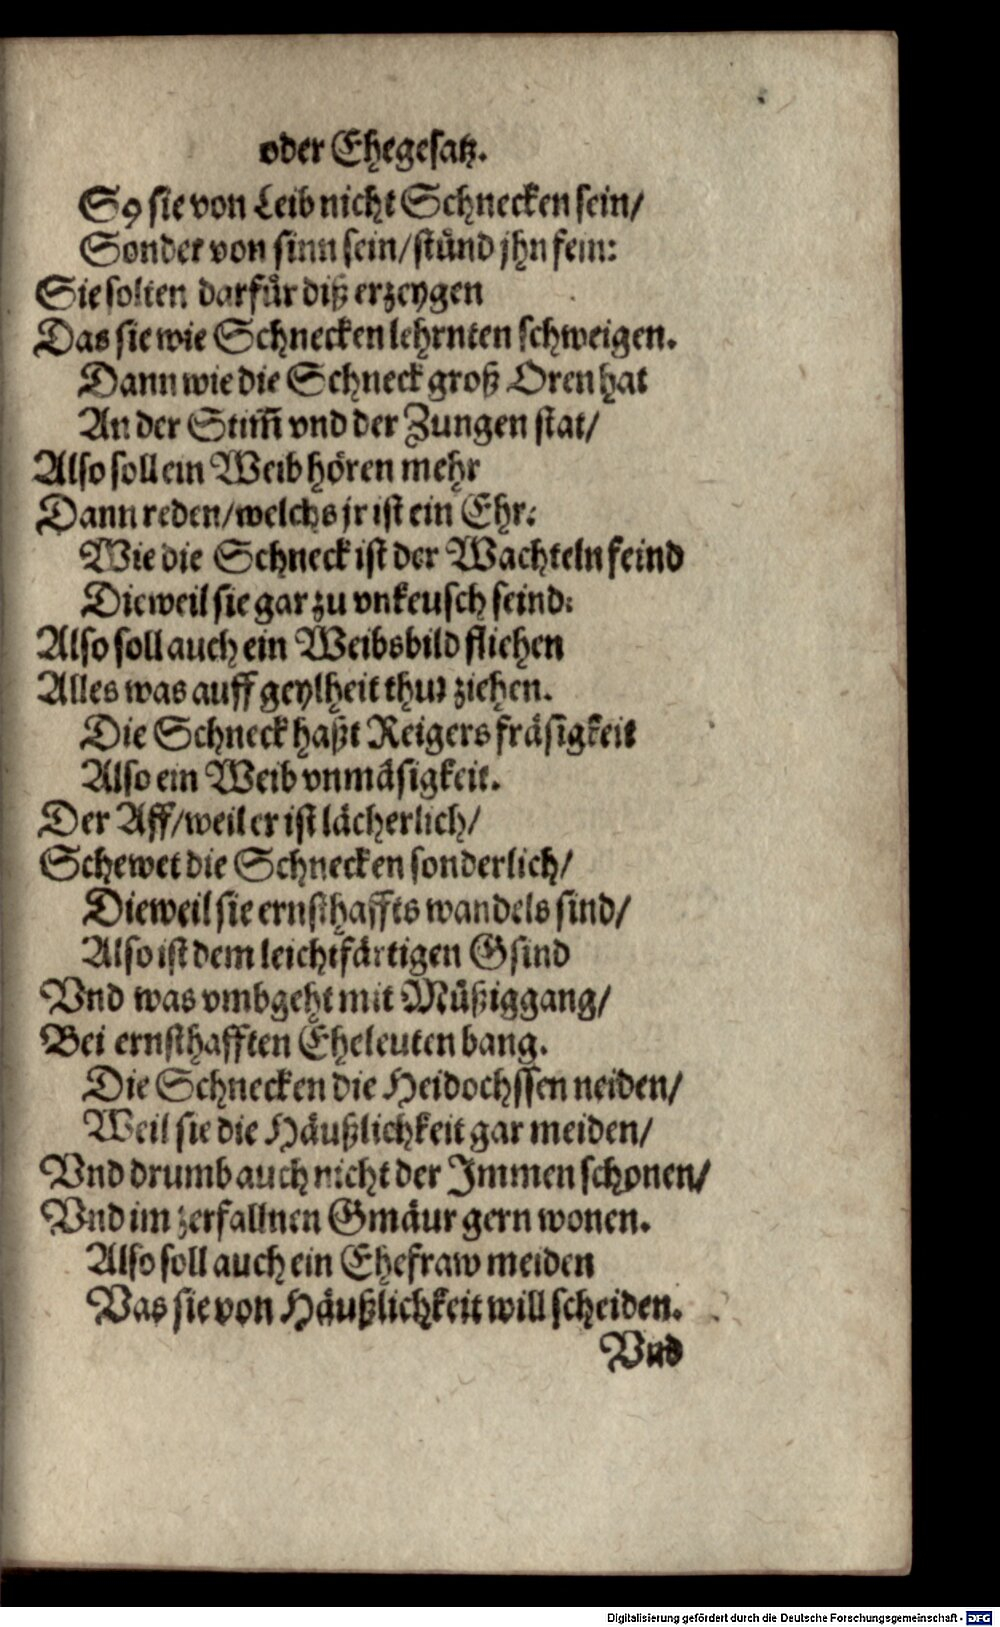 oder Ehegesatz.
So sie von Leib nicht Schnecken sein/
Sonder von sinn sein/stünd jhn fein:
Sie solten darfür diß erzeygen
Das sie wie Schnecken lehrnten schweigen.
Dann wie die Schneck groß Oren hat
An der Stim̃ vnd der Zungen stat/
Also soll ein Weib hören mehr
Dann reden/welchs jr ist ein Ehr:
Wie die Schneck ist der Wachteln feind
Dieweil sie gar zu vnkeusch seind:
Also soll auch ein Weibsbild fliehen
Alles was auff geylheit thut ziehen.
Die Schneck haßt Reigers fräsigkeit
Also ein Weib vnmäsigkeit.
Der Aff/weil er ist lächerlich/
Schewet die Schnecken sonderlich/
Dieweil sie ernsthaffts wandels sind/
Also ist dem leichtfärtigen Gsind
Vnd was vmbgeht mit Müßiggang/
Bei ernsthafften Eheleuten bang.
Die Schnecken die Heidochssen neiden/
Weil sie die Häußlichkeit gar meiden/
Vnd drumb auch nicht der Immen schonen/
Vnd im zerfallnen Gmäur gern wonen.
Also soll auch ein Ehefraw meiden
Was sie von Häußlichkeit will scheiden.
Vnd
Digitalisierung gefördert durch die Deutsche Forschungsgemeinschaft - DFG